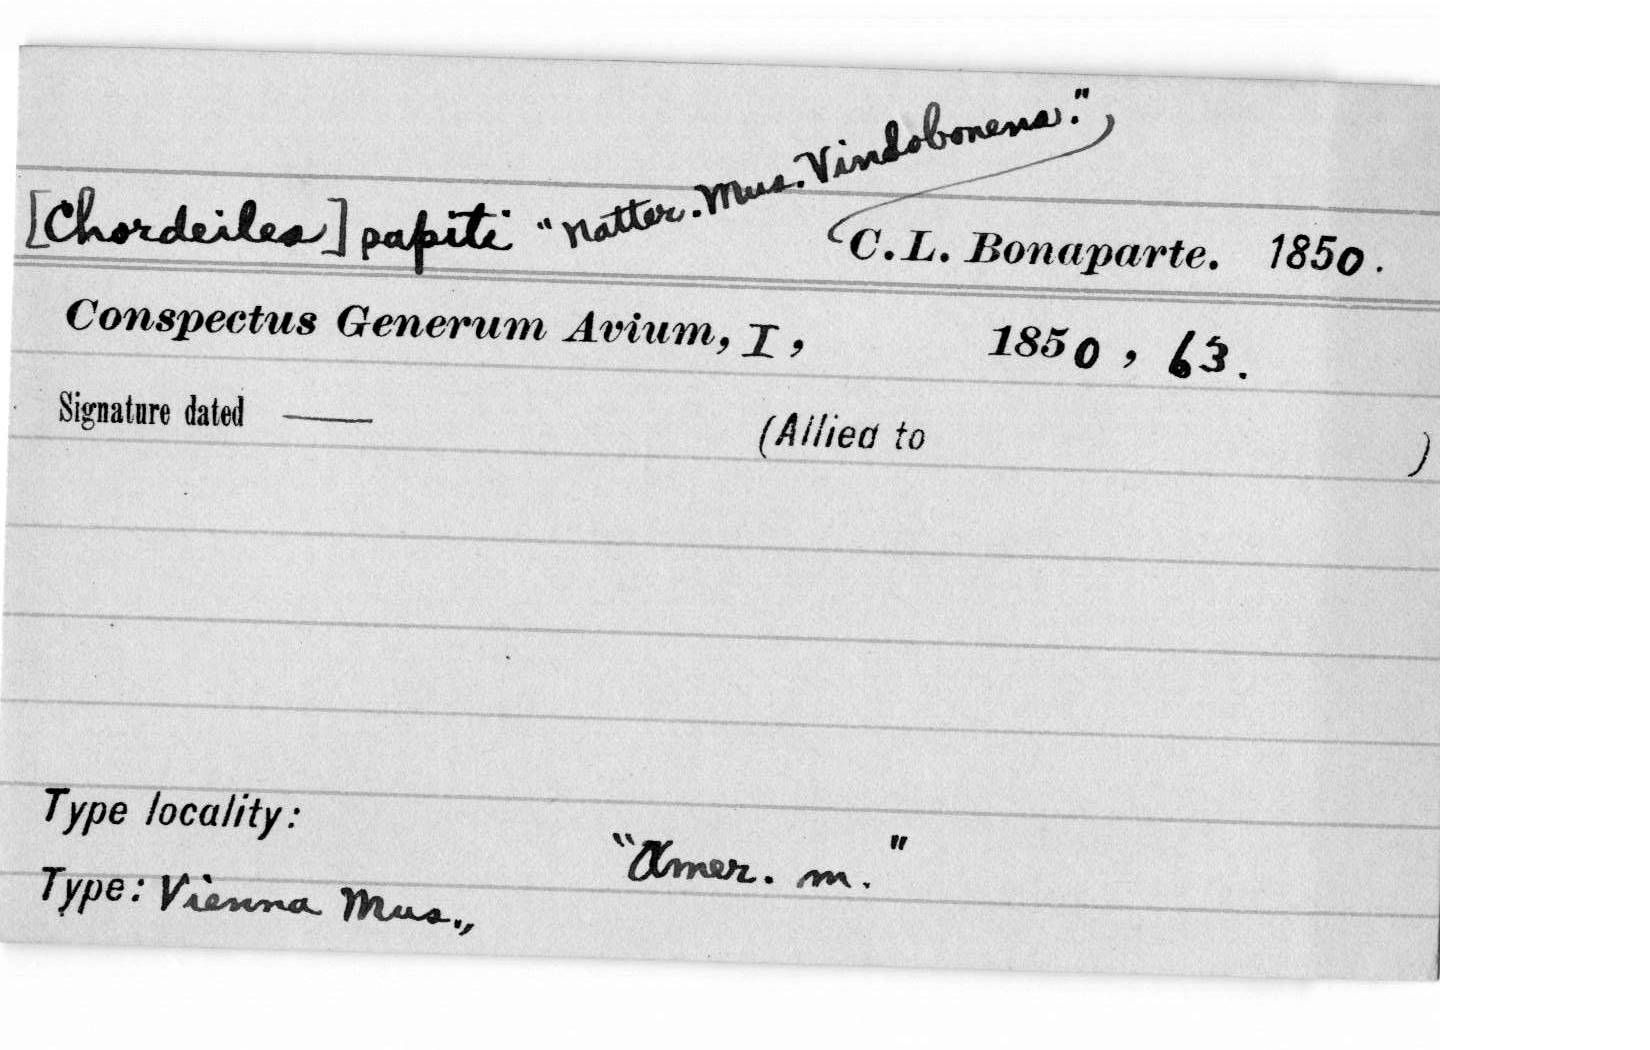 [Chordeiles] papiti "Natter. Mus. Vindobonens.", C. L. Bonaparte. 1850.
Conspectus Generum Avium, I, 1850, 63.
Signature dated —— (Allied to )
Type locality:
"Amer. m."
Type: Vienna Mus.,